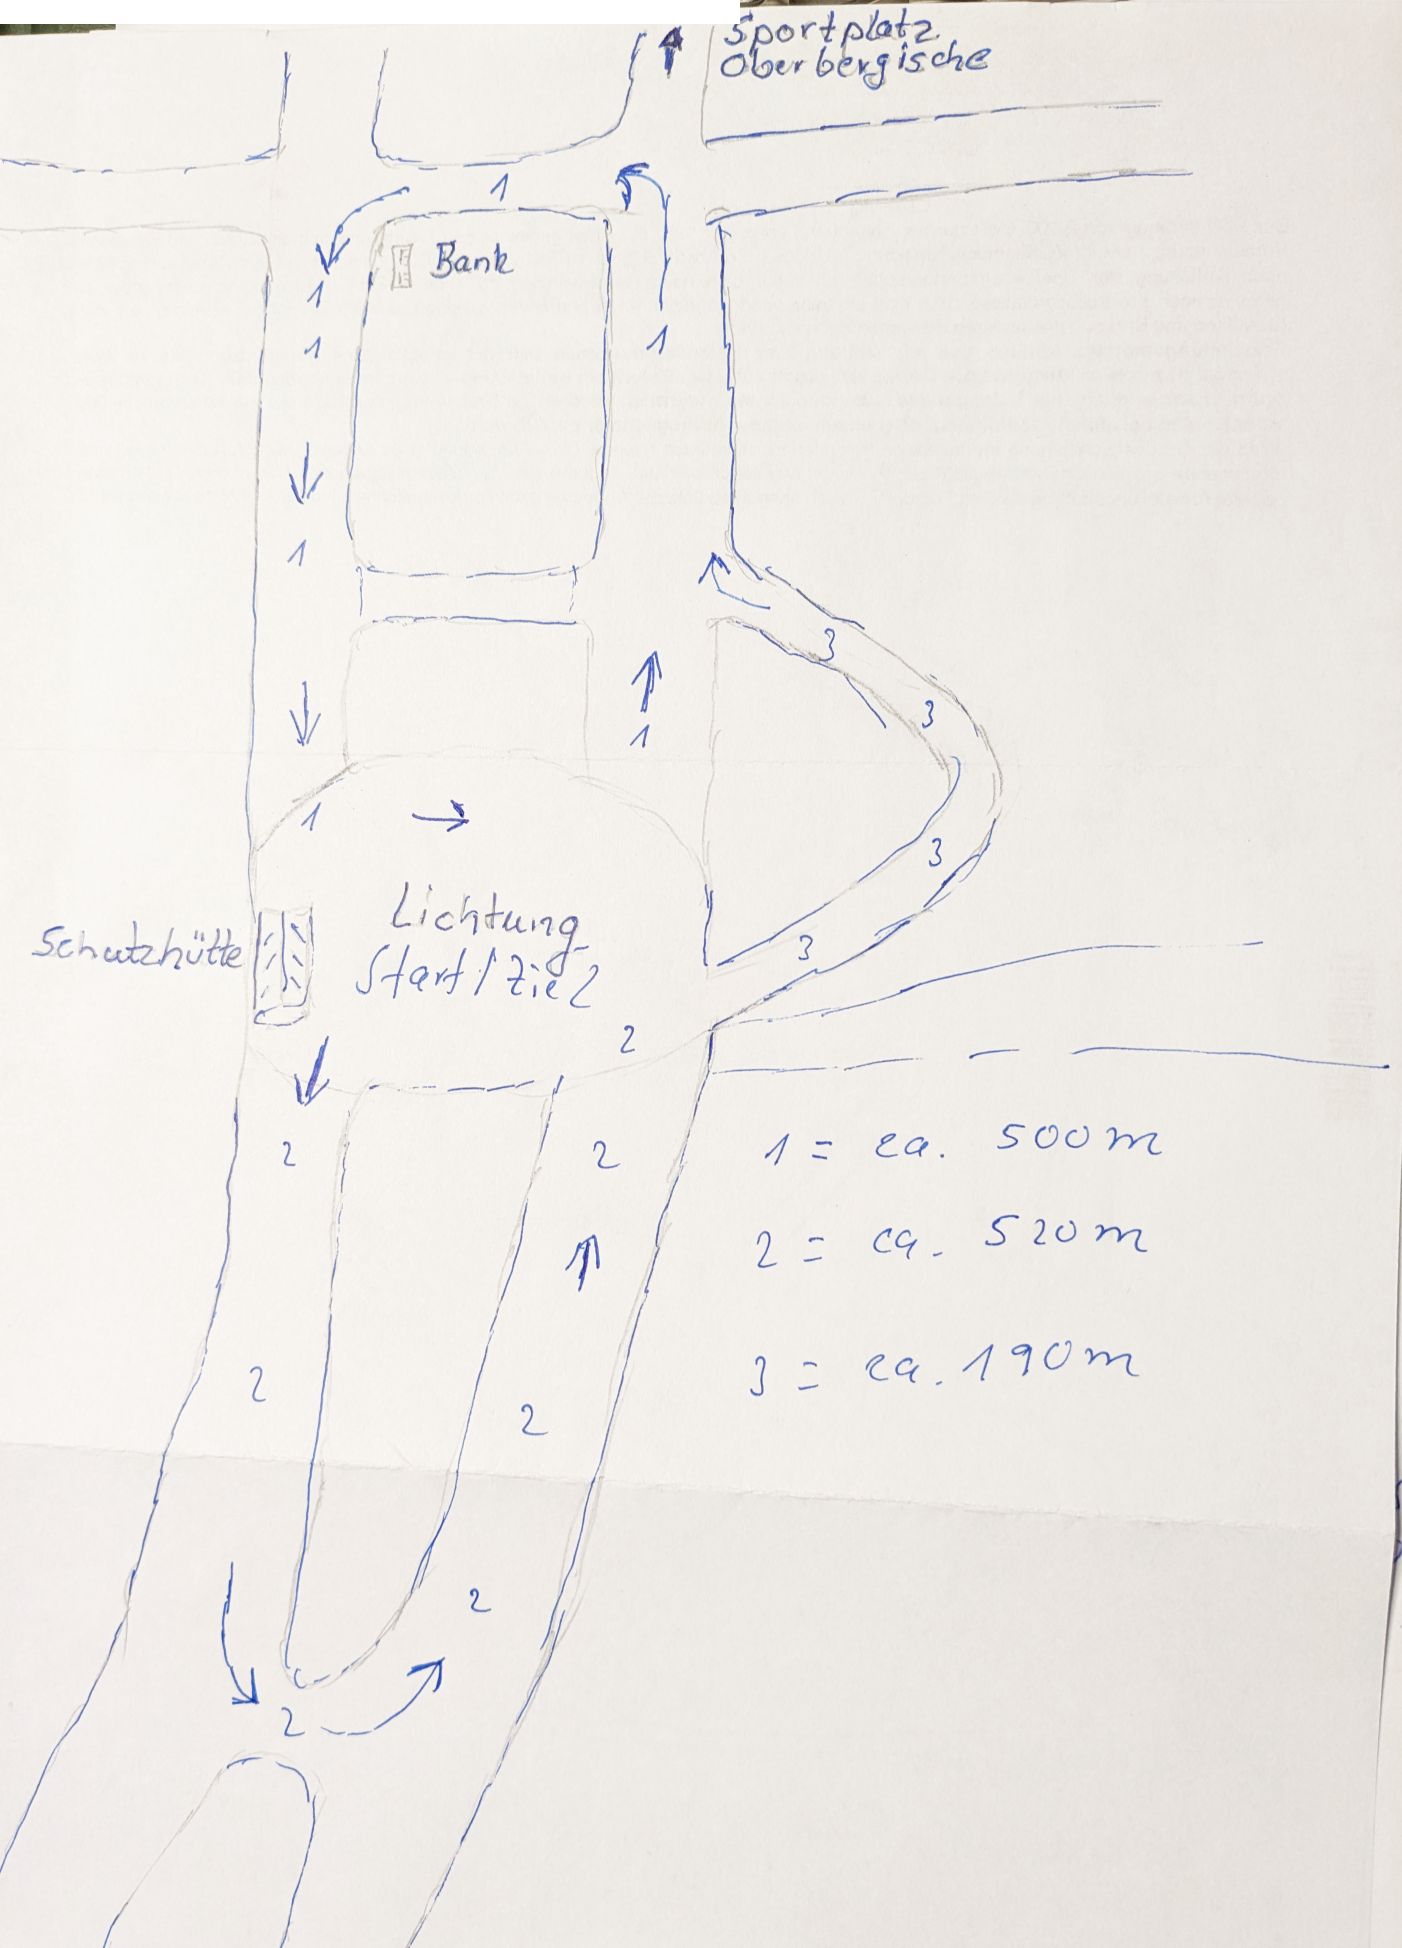 Sportplatz
Oberbergische
1
Bank
1
1
1
1
3
3
1
1
3
Lichtung
Schutzhütte
3
Start / Ziel
2
2
2
1 = ca. 500m
2 = ca. 520m
2
3 = ca. 190m
2
2
2